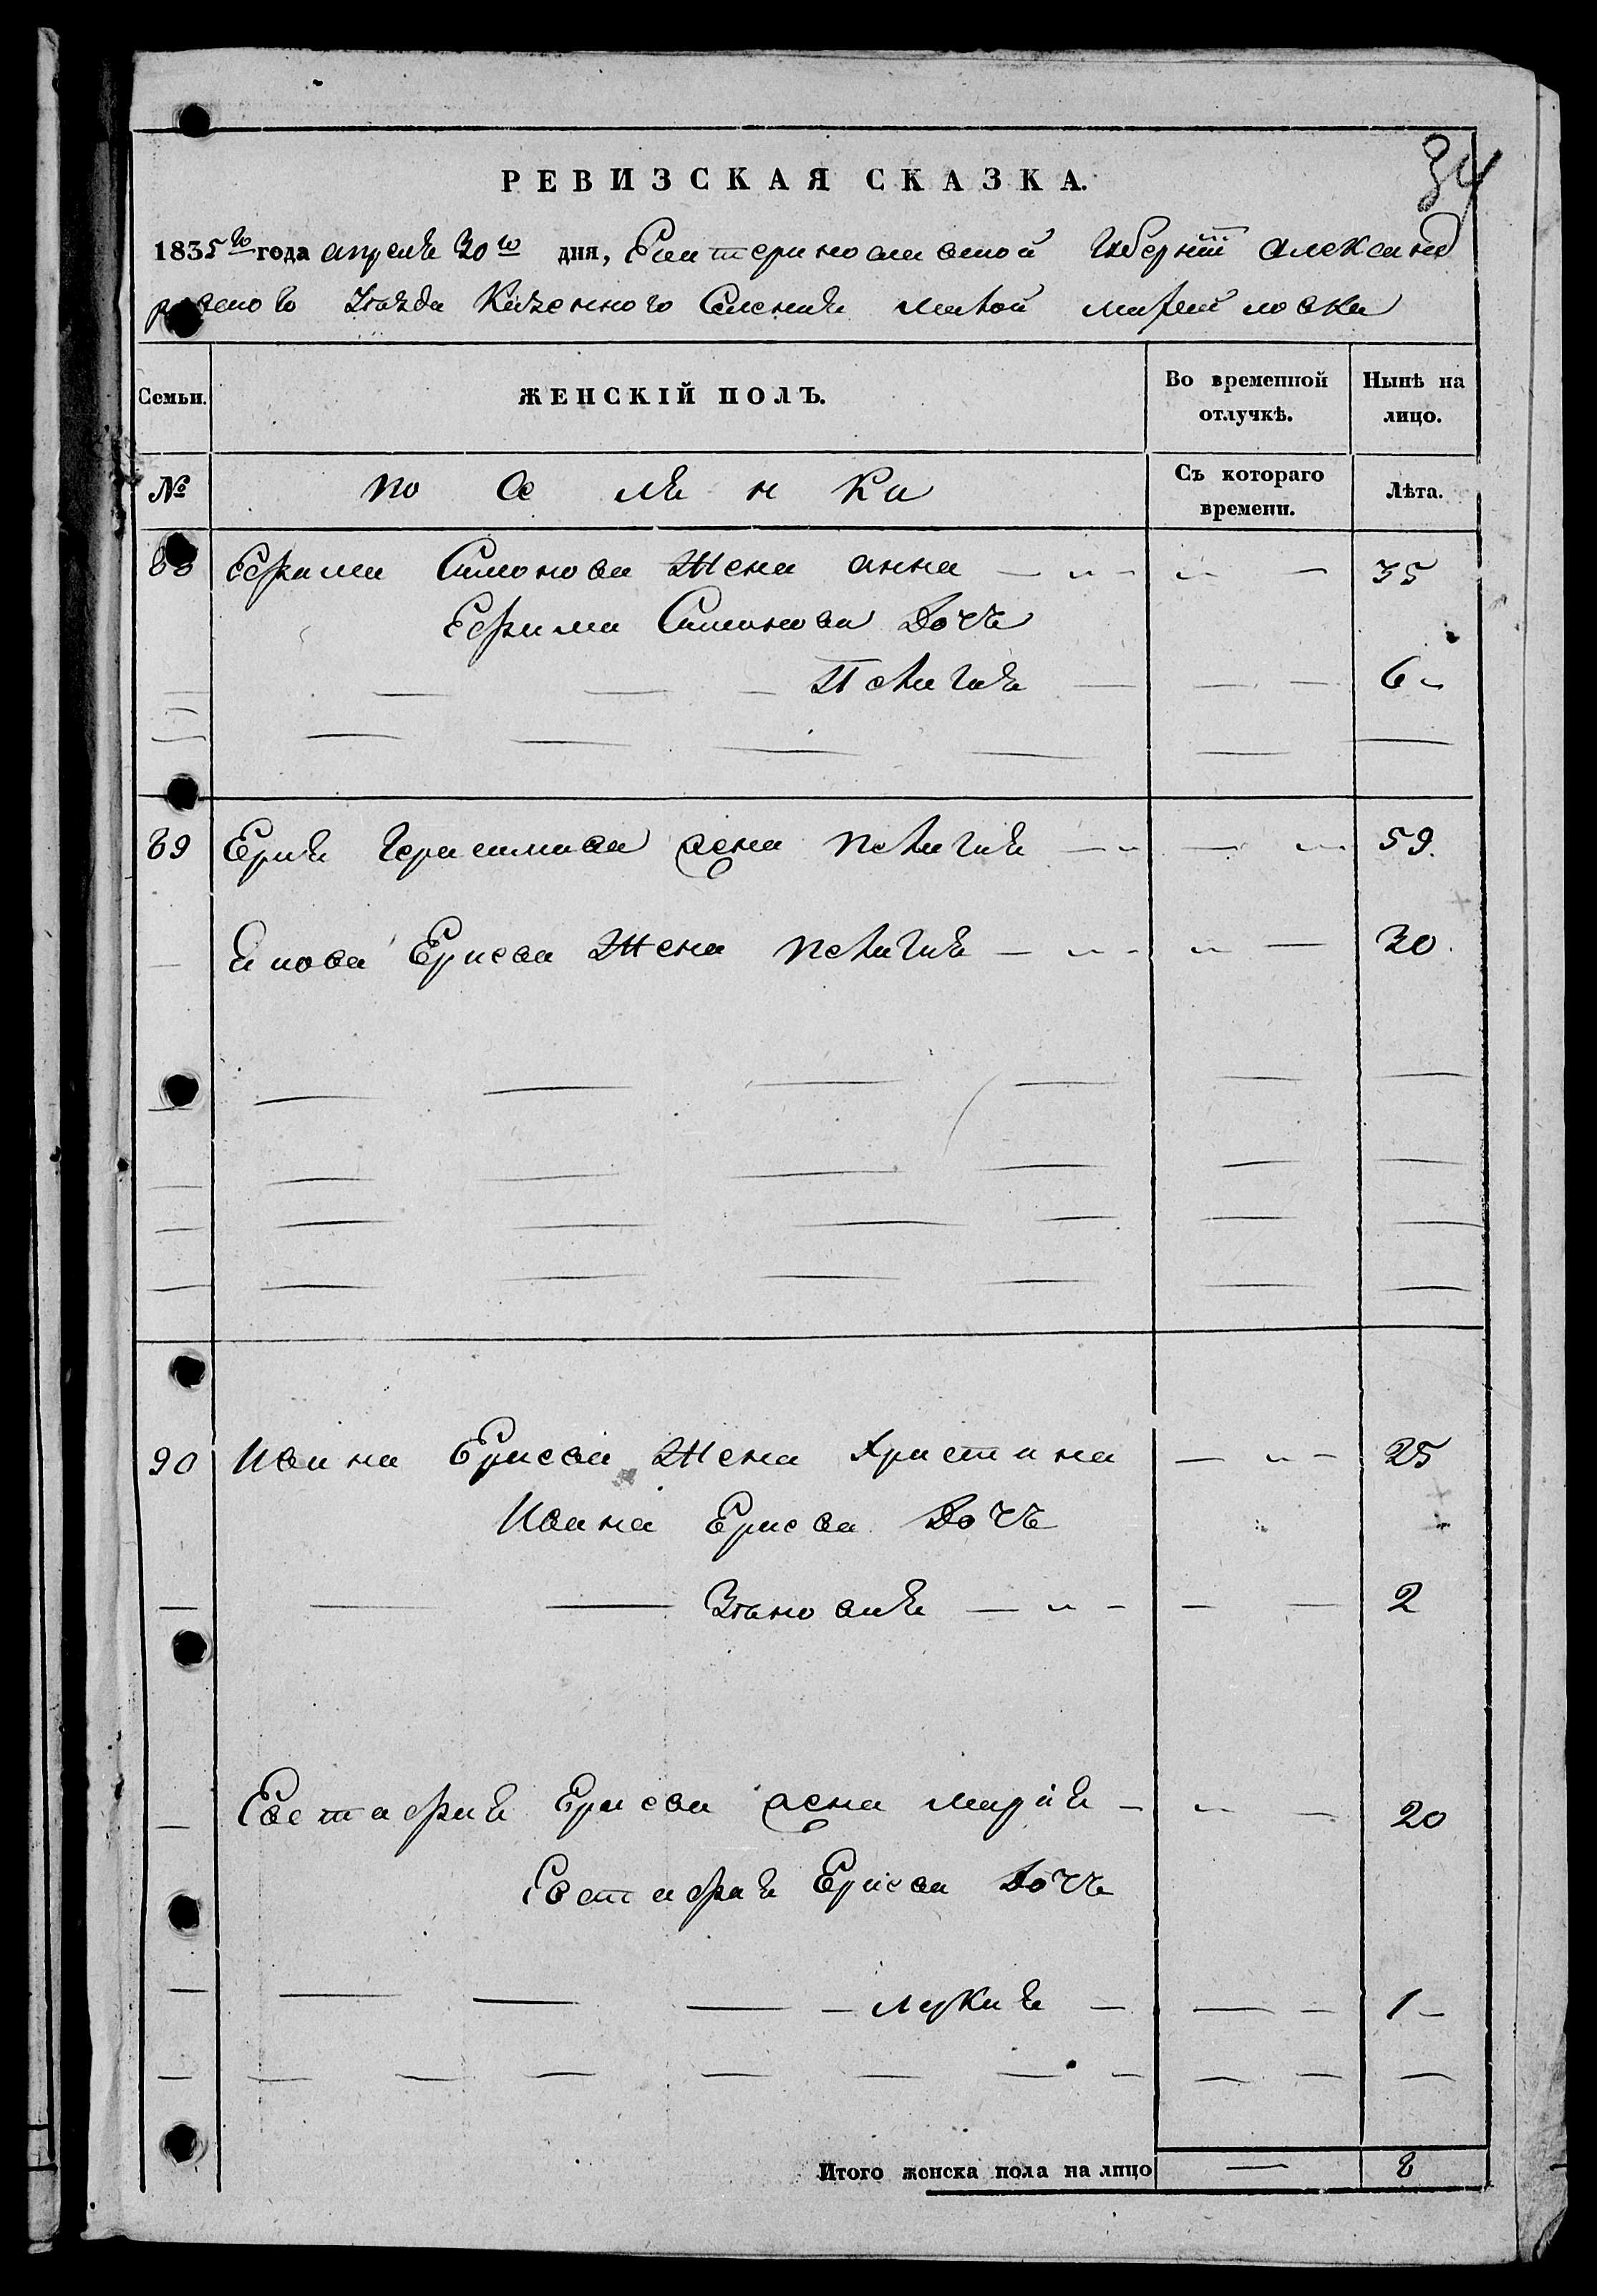 34
РЕВИЗСКАЯ СКАЗКА.
1835го года апреля 30го дня, Екатеринославской Губернiи Александ
рійского Уезда Казенного Селения Малой Мамайки
Семьи. ЖЕНСКІЙ ПОЛЪ. Во временной отлучкѣ. Нынѣ на лицо.
№ Съ котораго времени. Лѣта.
88 Ефима Симонова Жена анна 35
Ефима Симонова Дочь
Пелагия 6
89 Ериея Герасимова жена Пелагия 59.
Якова Ериева Жена Пелагия 30.
90 Ивана Ериева Жена Христина 25
Ивана Ериева Дочь
Зеновия 2
Евстафия Ериева жена мария 20
Евстафия Ериева Дочь
Лукия 1
Итого женска пола на лицо — 8